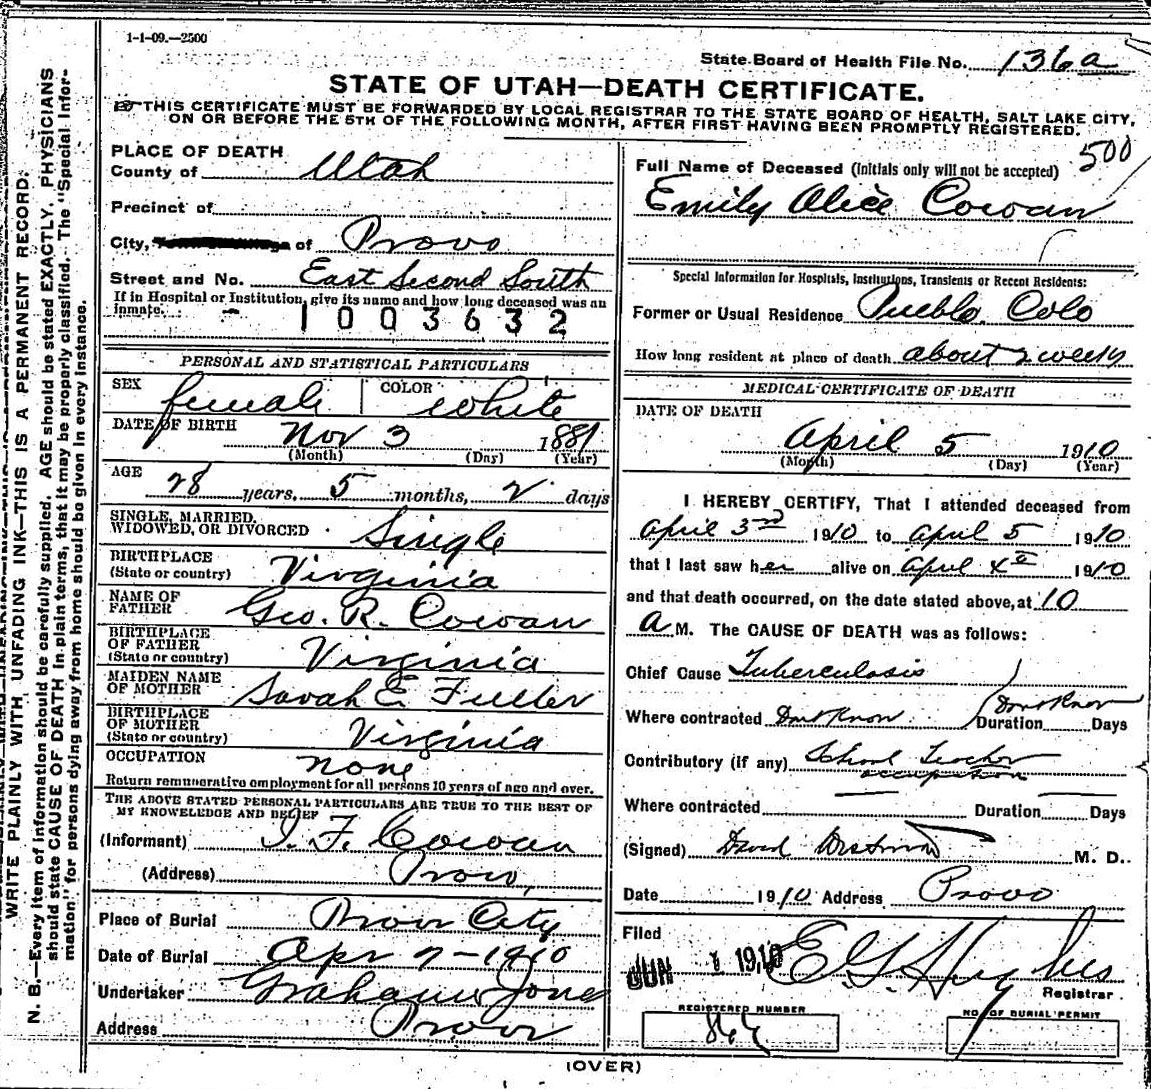 1-1-09.—2500
State Board of Health File No. 136a
STATE OF UTAH—DEATH CERTIFICATE.
THIS CERTIFICATE MUST BE FORWARDED BY LOCAL REGISTRAR TO THE STATE BOARD OF HEALTH, SALT LAKE CITY,
ON OR BEFORE THE 5TH OF THE FOLLOWING MONTH, AFTER FIRST HAVING BEEN PROMPTLY REGISTERED.
500
WRITE PLAINLY WITH UNFADING INK—THIS IS A PERMANENT RECORD.
N. B.—Every item of information should be carefully supplied. AGE should be stated EXACTLY, PHYSICIANS
should state CAUSE OF DEATH in plain terms, that it may be properly classified. The "Special Infor-
mation" for persons dying away from home should be given in every instance.
PLACE OF DEATH
County of Utah
Precinct of
City, of Provo
Street and No. East Second South
If in Hospital or Institution, give its name and how long deceased was an
inmate. -
1003632
PERSONAL AND STATISTICAL PARTICULARS
SEX female COLOR white
DATE OF BIRTH Nov 3 1881
(Month) (Day) (Year)
AGE 28 years, 5 months, 2 days
SINGLE, MARRIED,
WIDOWED, OR DIVORCED Single
BIRTHPLACE
(State or country) Virginia
NAME OF
FATHER Geo. R. Cowan
BIRTHPLACE
OF FATHER
(State or country) Virginia
MAIDEN NAME
OF MOTHER Sarah E Fuller
BIRTHPLACE
OF MOTHER
(State or country) Virginia
OCCUPATION none
Return remunerative employment for all persons 10 years of age and over.
THE ABOVE STATED PERSONAL PARTICULARS ARE TRUE TO THE BEST OF
MY KNOWLEDGE AND BELIEF
(Informant) I. F. Cowan
(Address) Provo,
Place of Burial Provo City
Date of Burial Apr 7-1910
Undertaker Jones
Address Provo
Full Name of Deceased (Initials only will not be accepted)
Emily Alice Cowan
Special Information for Hospitals, Institutions, Transients or Recent Residents:
Former or Usual Residence Pueblo Colo
How long resident at place of death about 2 weeks
MEDICAL CERTIFICATE OF DEATH
DATE OF DEATH
April 5 1910
(Month) (Day) (Year)
I HEREBY CERTIFY, That I attended deceased from
April 3rd 1910 to April 5 1910
that I last saw her alive on April 4th 1910
and that death occurred, on the date stated above, at 10
a M. The CAUSE OF DEATH was as follows:
Chief Cause Tuberculosis
Where contracted Dont Know Duration Dont Know Days
Contributory (if any) School Teacher
occupation
Where contracted — Duration — Days
(Signed) David M. D..
Date 1910 Address Provo
Filed
JUN 1 1910 E G Hughes
Registrar
REGISTERED NUMBER
NO. OF BURIAL PERMIT
(OVER)